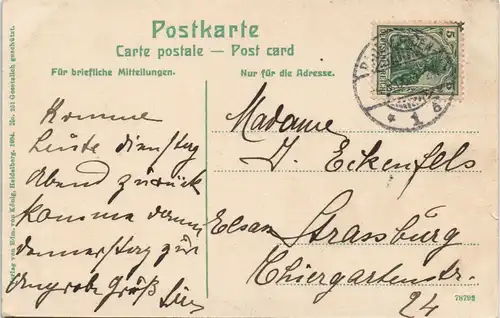 Postkarte
Carte postale — Post card
Für briefliche Mitteilungen.
Nur für die Adresse.
Komme
heute dienstag
Abend zurück
komme dann
donnerstag zur
Gruß
Madame
J. Eckenfels
Elsass Strassburg
Thiergartenstr.
24
78792
Verlag von Edm. von König, Heidelberg. 1904. No. 251 Gesetzlich geschützt.
5
* 1 b